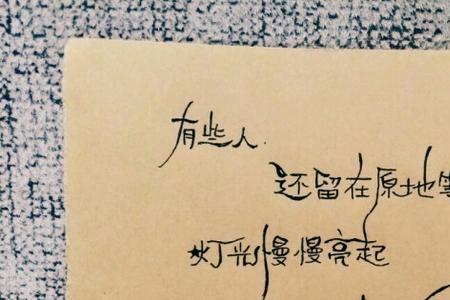 有些人.
还留在原地等
灯光慢慢亮起